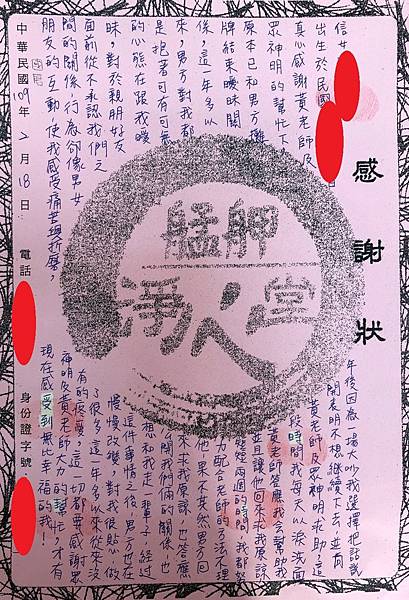 感謝狀
艋舺
淨心堂
信女
出生於民國
真心感謝黃老師及
眾神明的幫忙下，
原本已和男方攤
牌結束曖昧關
係，這一年多以
來，男方對我都
是抱著可有可無
的心態在跟我曖
昧，對於親朋好友
面前從不承認我們之
間的關係，行為卻像男女
朋友的互動，使我感受痛苦與折磨，
年後因為一場大吵我選擇把話說
開表明不想繼續下去，並有
黃老師及眾神明求助，這
段時間我每天以淚洗面
黃老師答應我會幫助我
並且讓他回來求我原諒
短短兩個的時間，我都努
力配合老師的方法不理
他，果不其然男方回
來求我原諒，也答應
公開我們倆的關係，也
想和我走一輩子，經過
這件事情之後，男方也在
慢慢改變，對我很貼心做
了很多這一年多以來從來沒
有的疼愛，這一切都要感謝眾
神明及黃老師大力的幫忙，才有
現在感受到無比幸福的我！
中華民國109年2月18日
電話
身份證字號